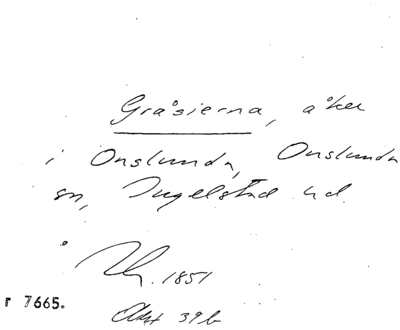 Gråsierna, åker
i Onslunda, Onslunda
sn, Ingelstad hd.
1851
r 7665.
Akt 39b